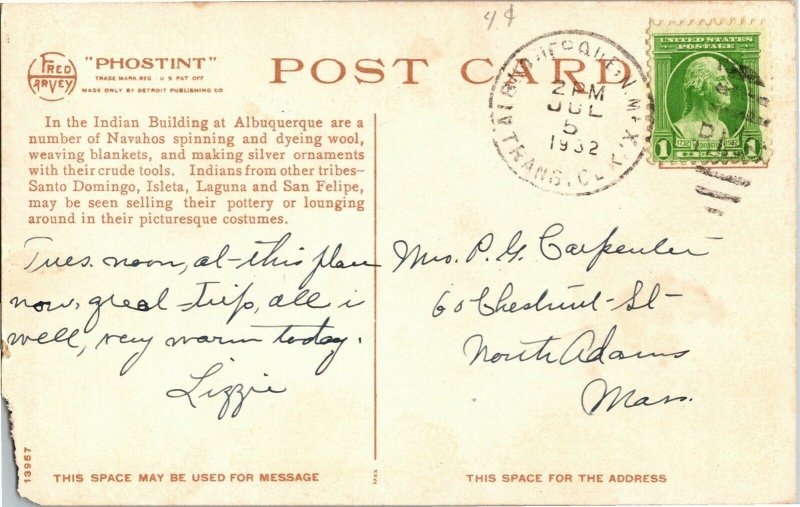 4¢
FRED HARVEY
"PHOSTINT"
TRADE MARK REG · U S PAT OFF
MADE ONLY BY DETROIT PUBLISHING CO
POST CARD
In the Indian Building at Albuquerque are a
number of Navahos spinning and dyeing wool,
weaving blankets, and making silver ornaments
with their crude tools. Indians from other tribes—
Santo Domingo, Isleta, Laguna and San Felipe,
may be seen selling their pottery or lounging
around in their picturesque costumes.
ALBUQUERQUE, N. MEX.
2 PM
JUL
5
1932
TRANS. CLK.
UNITED STATES
POSTAGE
1 1
CENT
Tues. noon, at this place
now, great trip, all is
well, very warm today.
Lizzie
Mrs. P. G. Carpenter
60 Chestnut St
North Adams
Mass.
13957
THIS SPACE MAY BE USED FOR MESSAGE
THIS SPACE FOR THE ADDRESS